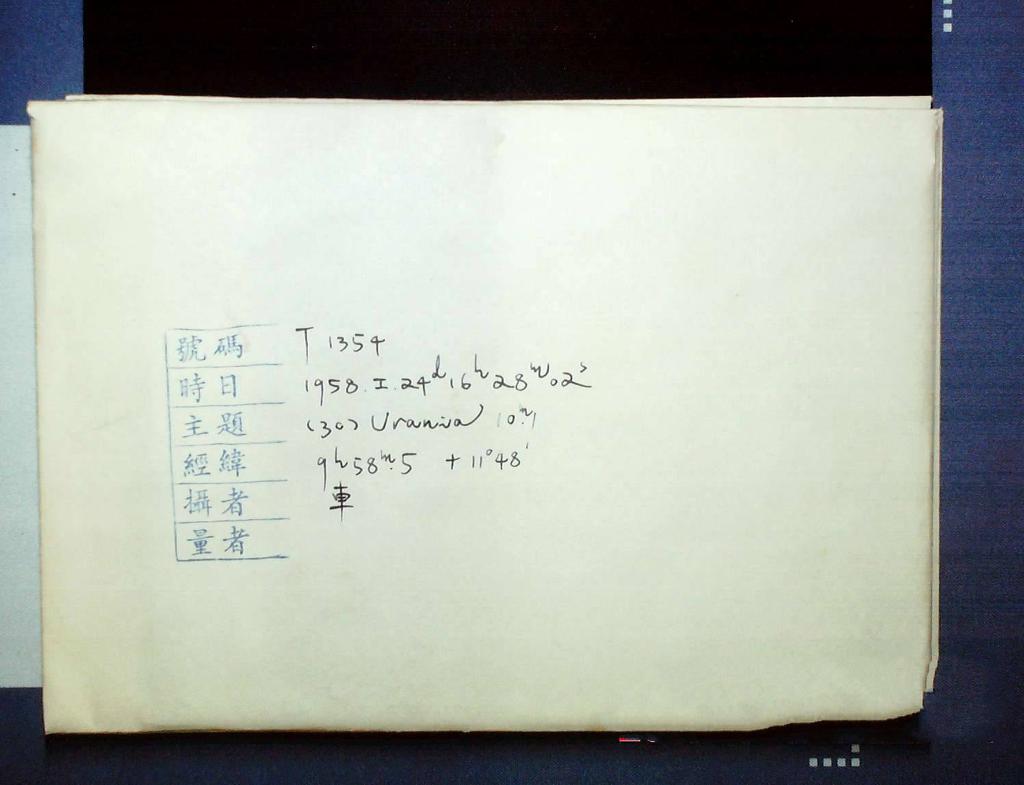 號碼 T 1354
時日 1958.I.24ᵈ16ʰ28ᵐ02ˢ
主題 (30) Urania 10ᵐ.1
經緯 9ʰ58ᵐ.5 +11°48′
攝者 車
量者